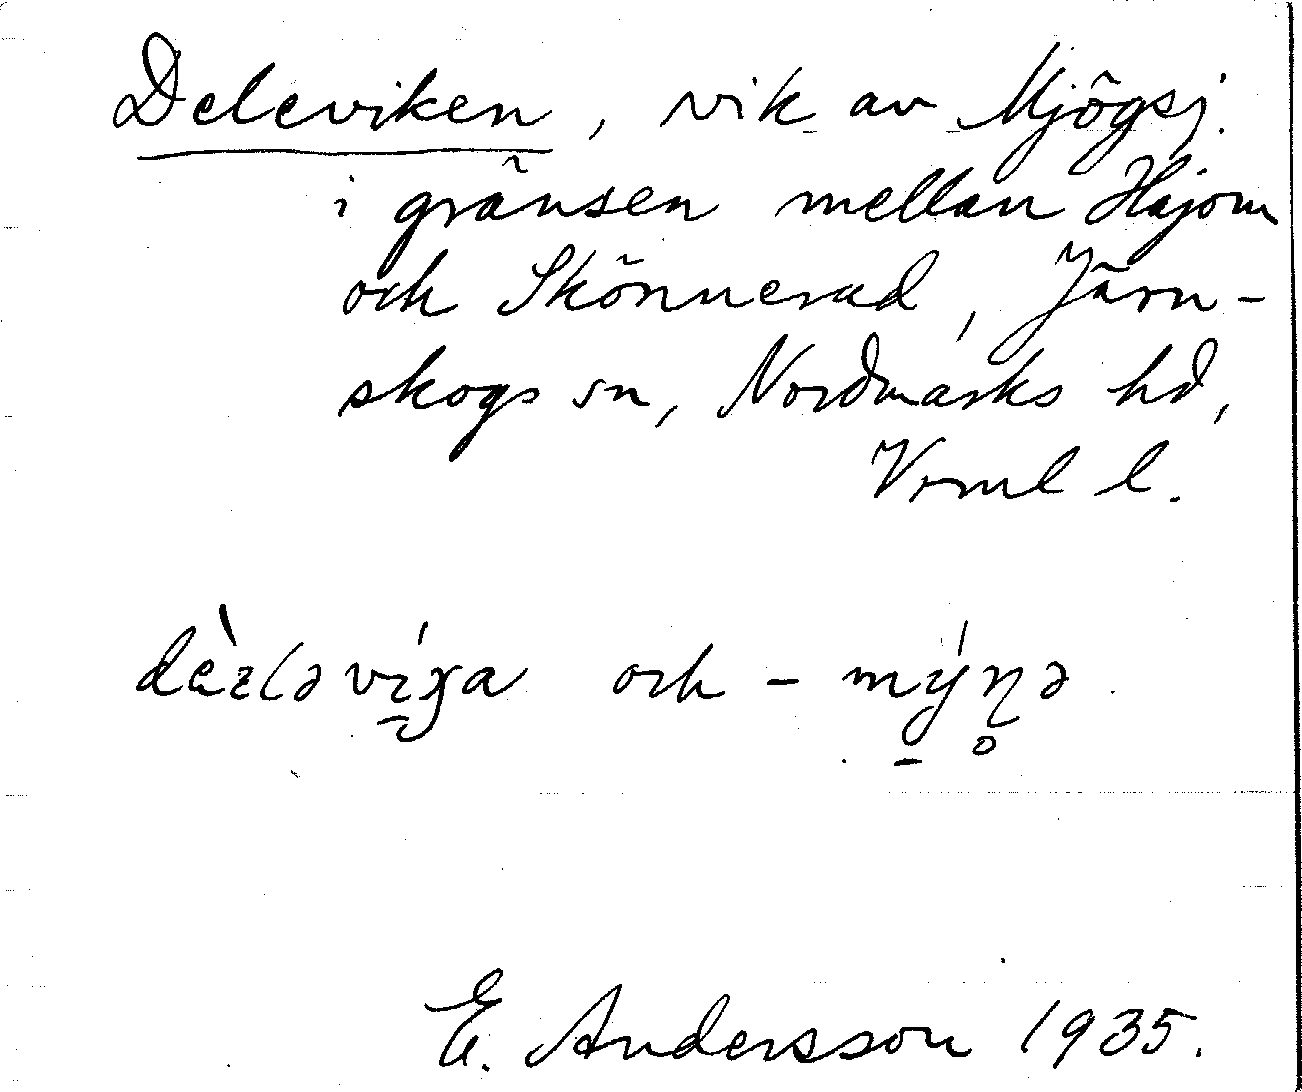 Deleviken, vik av Mjögsj.
i gränsen mellan Häjom
och Skönnerud, Järn-
skogs sn, Nordmarks hd,
Vrml l.
och
E. Andersson 1935.